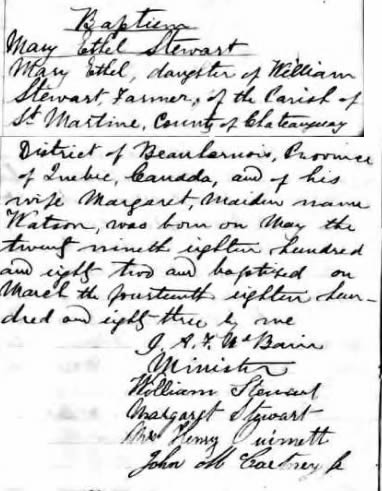 Baptism
Mary Ethel Stewart
Mary Ethel, daughter of William
Stewart, Farmer, of the Parish of
St Martine, County of Chateauguay
District of Beauharnois, Province
of Quebec, Canada, and of his
wife Margaret, maiden name
Watson, was born on May the
twenty ninth eighteen hundred
and eighty two and baptized on
March the fourteenth eighteen hun-
dred and eighty three by me
J. A. F. McBain
Minister
William Stewart
Margaret Stewart
Mrs Henry
John McCartney